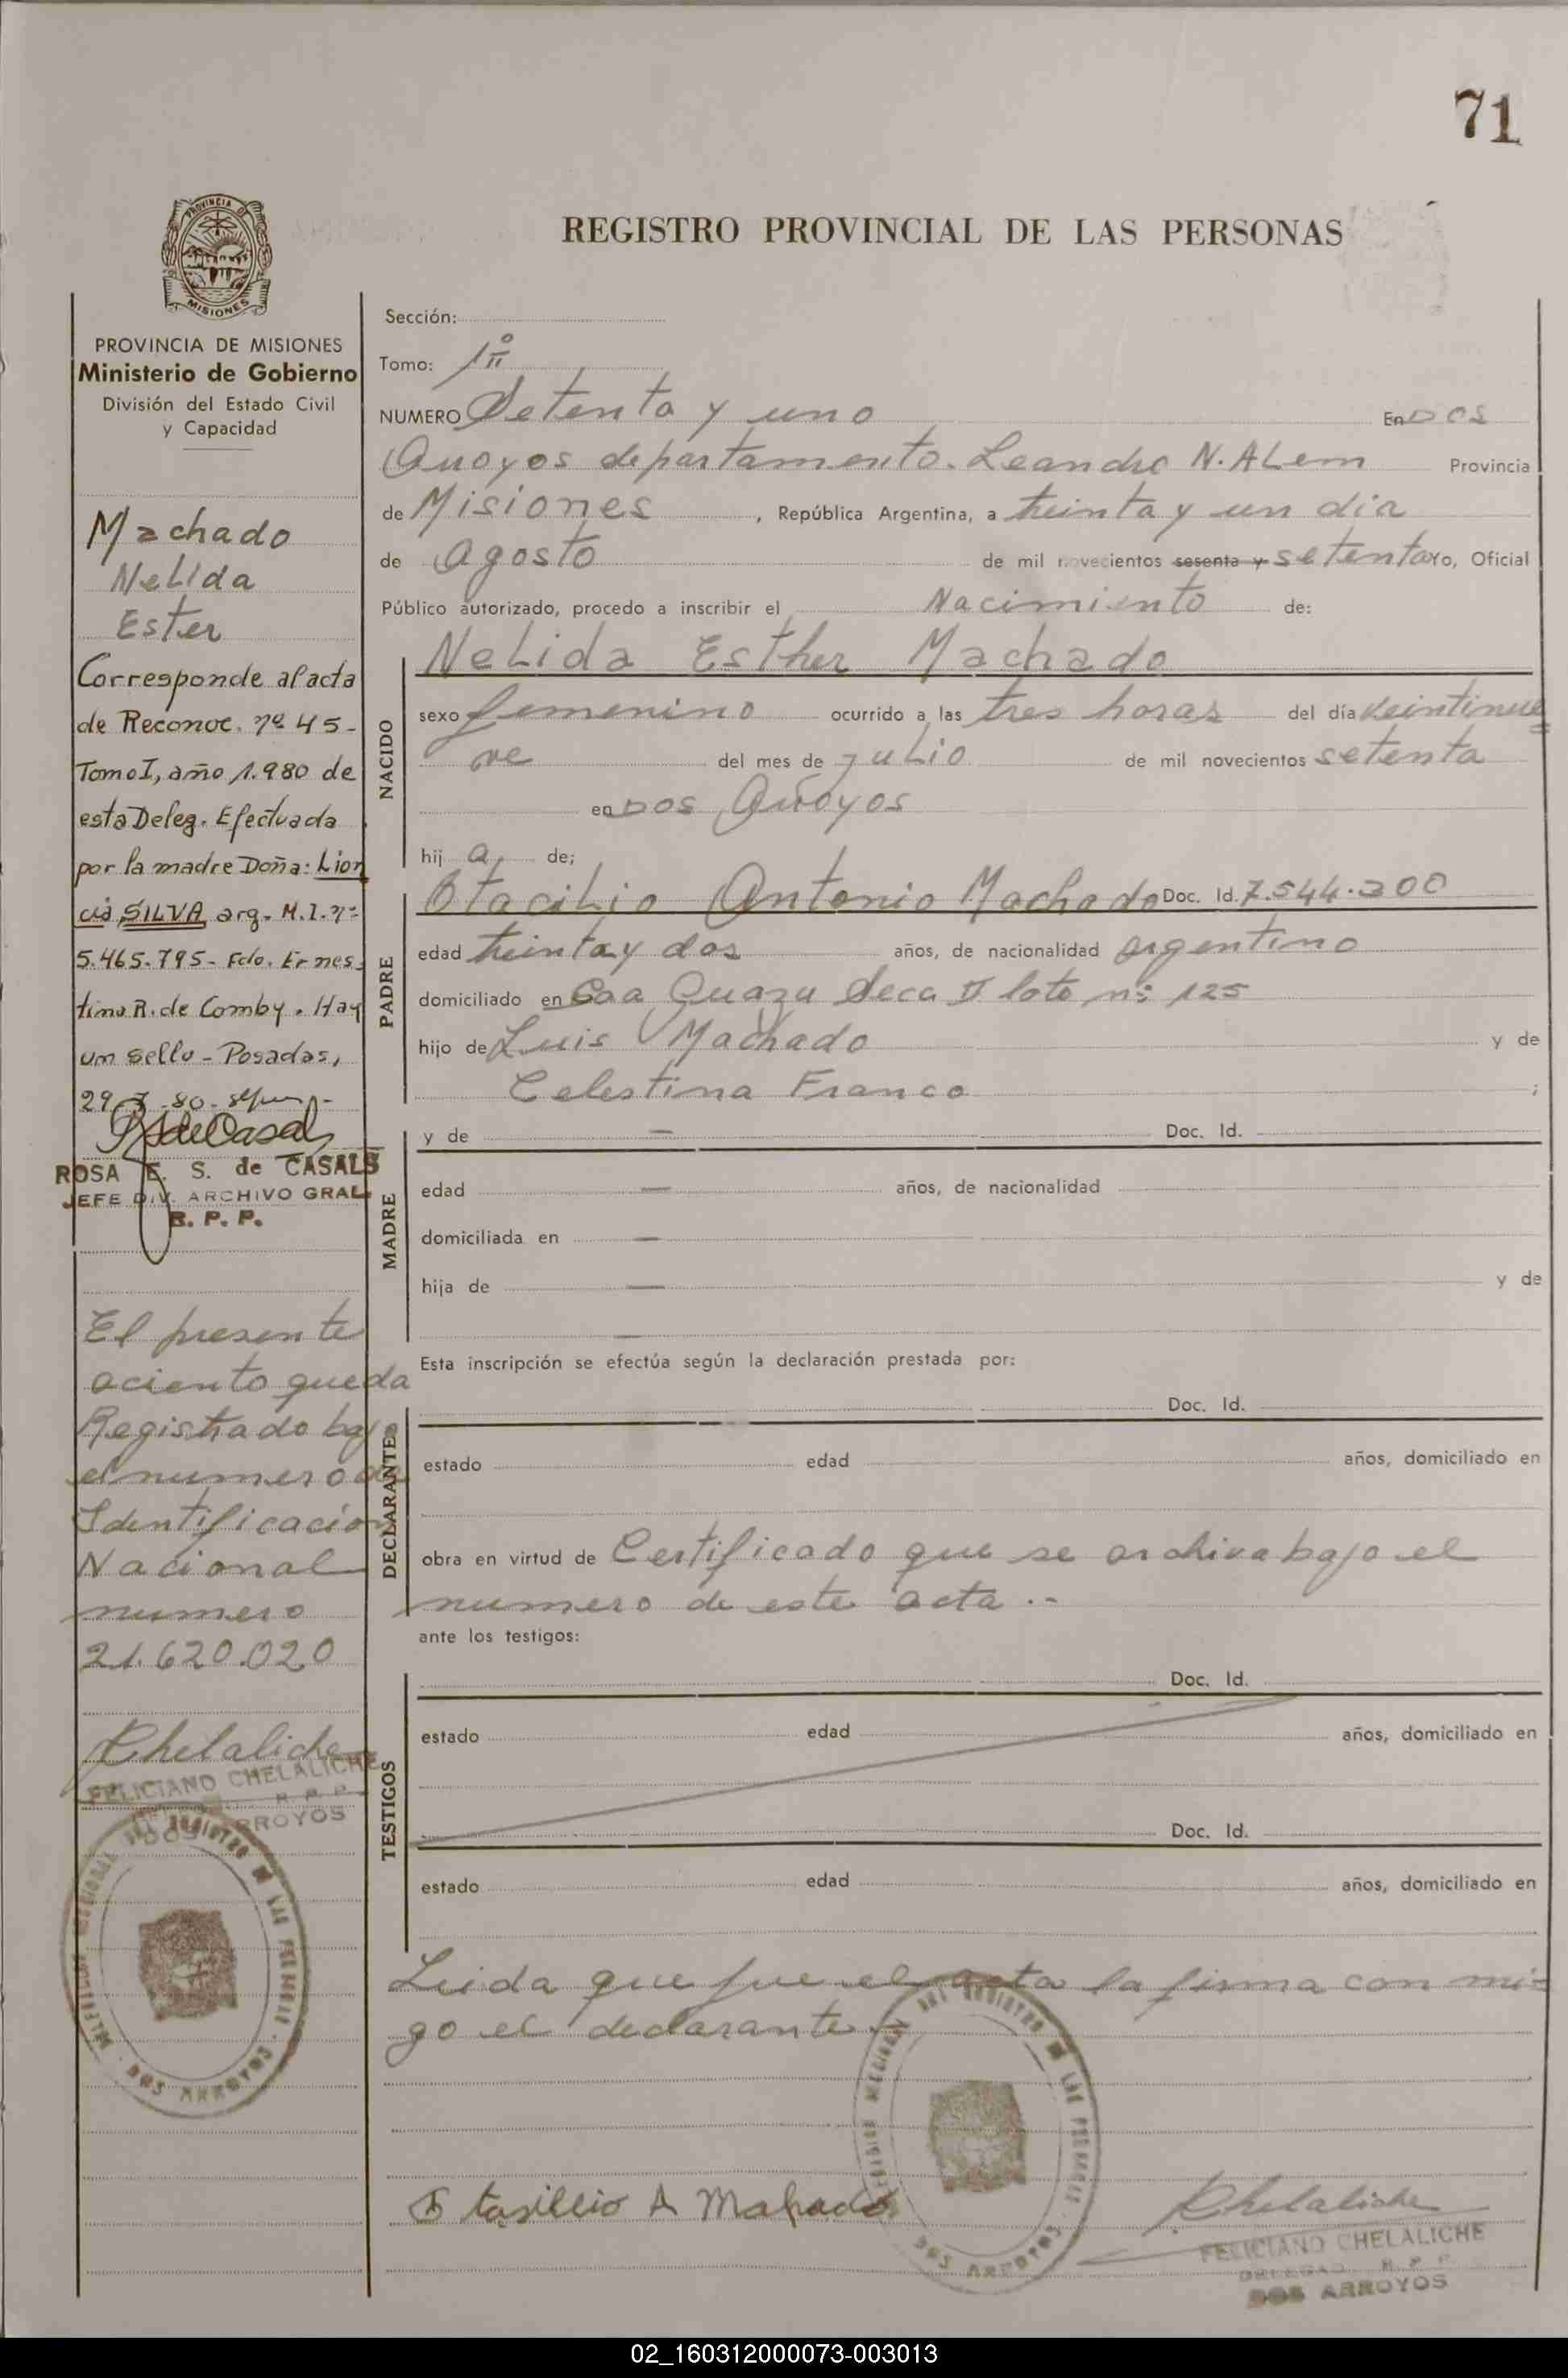 71
PROVINCIA DE
MISIONES
REGISTRO PROVINCIAL DE LAS PERSONAS
PROVINCIA DE MISIONES
Ministerio de Gobierno
División del Estado Civil
y Capacidad
Machado
Nelida
Ester
Corresponde al acta
de Reconoc. nº 45-
Tomo I, año 1.980 de
esta Deleg. Efectuada
por la madre Doña: Lion
cia SILVA arg. M.I. nº
5.465.795- Fdo. Ernes
tina R. de Comby. Hay
un sello - Posadas,
29 -80-
ROSA E. S. de CASALS
JEFE DIV. ARCHIVO GRAL.
R. P. P.
El presente
aciento queda
Registrado bajo
el numero de
Identificación
Nacional
numero
21.620.020
Chelaliche
FELICIANO CHELALICHE
R. P. P.
DOS ARROYOS
DEL REGISTRO DE LAS PERSONAS · DOS ARROYOS
Sección:
Tomo: 1º
NUMERO Setenta y uno En Dos
Arroyos departamento. Leandro N. ALem Provincia
de Misiones, República Argentina, a treinta y un dia
de Agosto de mil novecientos sesenta y setenta yo, Oficial
Público autorizado, procedo a inscribir el Nacimiento de:
NACIDO
Nelida Esther Machado
sexo femenino ocurrido a las tres horas del día veintinue
ve del mes de julio de mil novecientos setenta
en Dos Arroyos
hij a de;
PADRE
Otacilio Antonio Machado Doc. Id. 7.544.300
edad treinta y dos años, de nacionalidad argentino
domiciliado en Caa Guazu Seca lote nº 125
hijo de Luis Machado y de
Celestina Franco ;
MADRE
y de — Doc. Id.
edad — años, de nacionalidad
domiciliada en —
hija de — y de
—
Esta inscripción se efectúa según la declaración prestada por:
DECLARANTE
Doc. Id.
estado edad años, domiciliado en
obra en virtud de Certificado que se archiva bajo el
numero de este acta .-
ante los testigos:
TESTIGOS
Doc. Id.
estado edad años, domiciliado en
Doc. Id.
estado edad años, domiciliado en
Leida que fue el acta la firma con mi-
go el declarante.-
DEL REGISTRO DE LAS PERSONAS · DOS ARROYOS
Otasillio A Machado
Chelaliche
FELICIANO CHELALICHE
R. P. P.
DOS ARROYOS
02_160312000073-003013